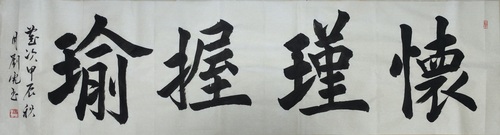 懷瑾握瑜
歲次甲辰秋
月劉